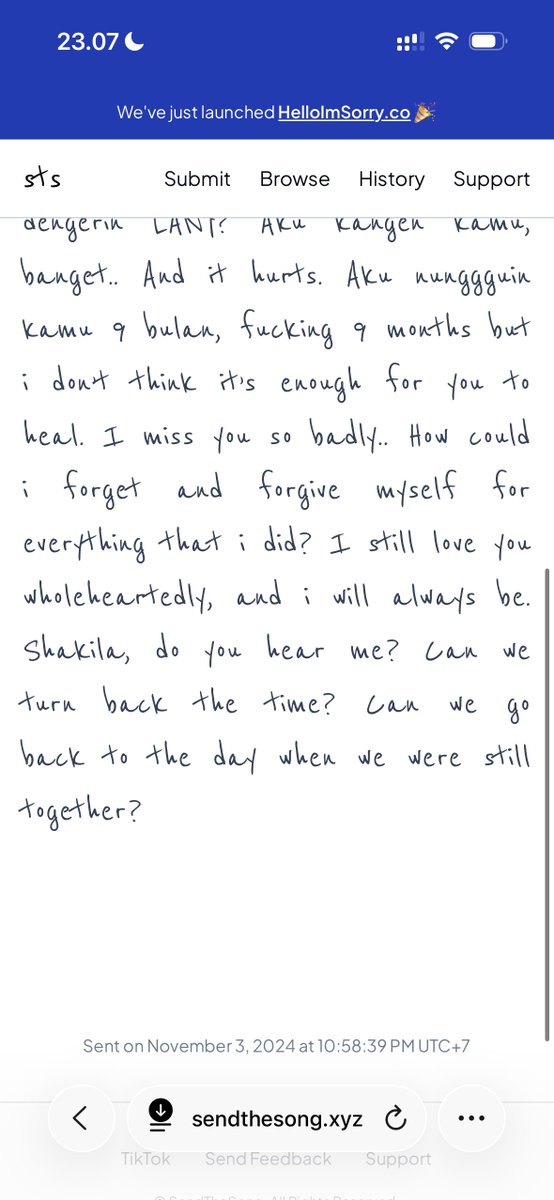 23.07
We've just launched HelloImSorry.co 🎉
sts Submit Browse History Support
dengerin LANY? Aku kangen kamu,
banget.. And it hurts. Aku nungggguin
kamu 9 bulan, fucking 9 months but
i don't think it's enough for you to
heal. I miss you so badly.. How could
i forget and forgive myself for
everything that i did? I still love you
wholeheartedly, and i will always be.
Shakila, do you hear me? Can we
turn back the time? Can we go
back to the day when we were still
together?
Sent on November 3, 2024 at 10:58:39 PM UTC+7
sendthesong.xyz
TikTok Send Feedback Support
© SendTheSong. All Rights Reserved